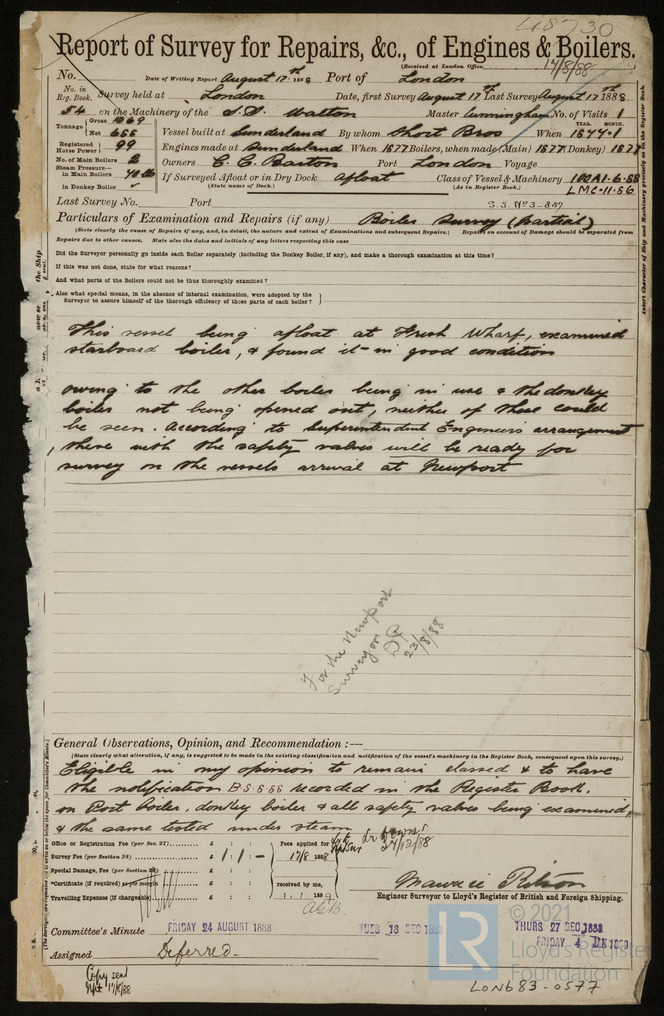 48730
Report of Survey for Repairs, &c., of Engines & Boilers.
(Received at London Office, 17/8/88
No. Date of Writing Report August 17th 1888 Port of London
No. in Reg. Book. Survey held at London Date, first Survey August 17th Last Survey August 17th 1888
54 on the Machinery of the S.S. Walton Master Cunningham No. of Visits 1
Tonnage Gross 1069 Net 666 Vessel built at Sunderland By whom Short Bros When YEAR. MONTH. 1877.1
Registered Horse Power 99 Engines made at Sunderland When 1877 Boilers, when made (Main) 1877 (Donkey) 1877
No. of Main Boilers 2 Owners C. C. Barton Port London Voyage
Steam Pressure— in Main Boilers 70 lb If Surveyed Afloat or in Dry Dock Afloat Class of Vessel & Machinery 100A1.6.88
in Donkey Boiler (State name of Dock.) (As in Register Book.) LMC.11.86
Last Survey No. Port S.S. No 3-
Particulars of Examination and Repairs (if any) Boiler Survey (partial)
(State clearly the cause of Repairs if any, and, in detail, the nature and extent of Examinations and subsequent Repairs.) Repairs on account of Damage should be separated from
Repairs due to other causes. State also the dates and initials of any letters respecting this case
Did the Surveyor personally go inside each Boiler separately (including the Donkey Boiler, if any), and make a thorough examination at this time?
If this was not done, state for what reasons?
And what parts of the Boilers could not be thus thoroughly examined?
Also what special means, in the absence of internal examination, were adopted by the
Surveyor to assure himself of the thorough efficiency of those parts of each boiler?
This vessel being afloat at Fresh Wharf, examined
starboard boiler, & found it in good condition
owing to the other boiler being in use & the donkey
boiler not being opened out, neither of these could
be seen. According to Superintendent Engineers arrangement
these with the safety valves will be ready for
survey on the vessels arrival at Newport
For the Newport
Surveyor
23/8/88
General Observations, Opinion, and Recommendation:—
(State clearly what alteration, if any, is suggested to be made in the existing classification and notification of the vessel's machinery in the Register Book, consequent upon this survey.)
Eligible in my opinion to remain classed & to have
the notification B.S. 8.88 recorded in the Register Book.
on Port boiler, donkey boiler & all safety valves being examined,
& the same tested under steam
Office or Registration Fee (per Sec. 27) £ : :
Survey Fee (per Section 28) £ 1 : 1 : -
Special Damage, Fee (per Section 28) £ : :
*Certificate (if required) as per margin £ : :
Travelling Expenses (if chargeable) £ : :
Fees applied for
17/8 1888
received by me,
Maurice Ritson
Engineer Surveyor to Lloyd's Register of British and Foreign Shipping.
Committee's Minute FRIDAY 24 AUGUST 1888 TUES 18 DEC 1888 THURS 27 DEC 1888
FRIDAY 4 JAN 1889
Assigned Deferred.
Copy sent
Npt 17/8/88
LR
© 2021
Lloyd's Register
Foundation
LON683-0577